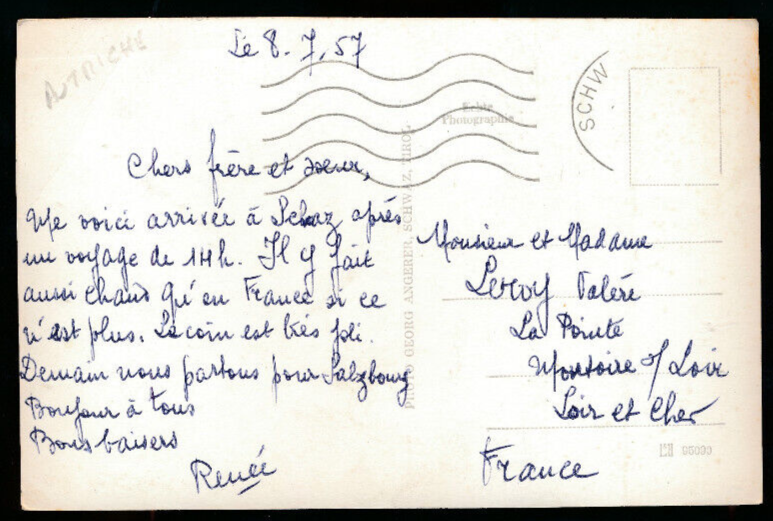 AUTRICHE
Le 8.7.57
SCHW
Echte
Photographie
Chers frère et soeur,
Me voici arrivée à Schaz après
un voyage de 14h. Il y fait
aussi chaud qu'en France si ce
n'est plus. Le coin est très joli.
Demain nous partons pour Salzbourg
Bonjour à tous
Bons baisers
Renée
PHOTO GEORG ANGERER, SCHWAZ, TIROL
Monsieur et Madame
Leroy Valéré
La Pointe
Montoire s/ Loir
Loir et Cher
France
95090